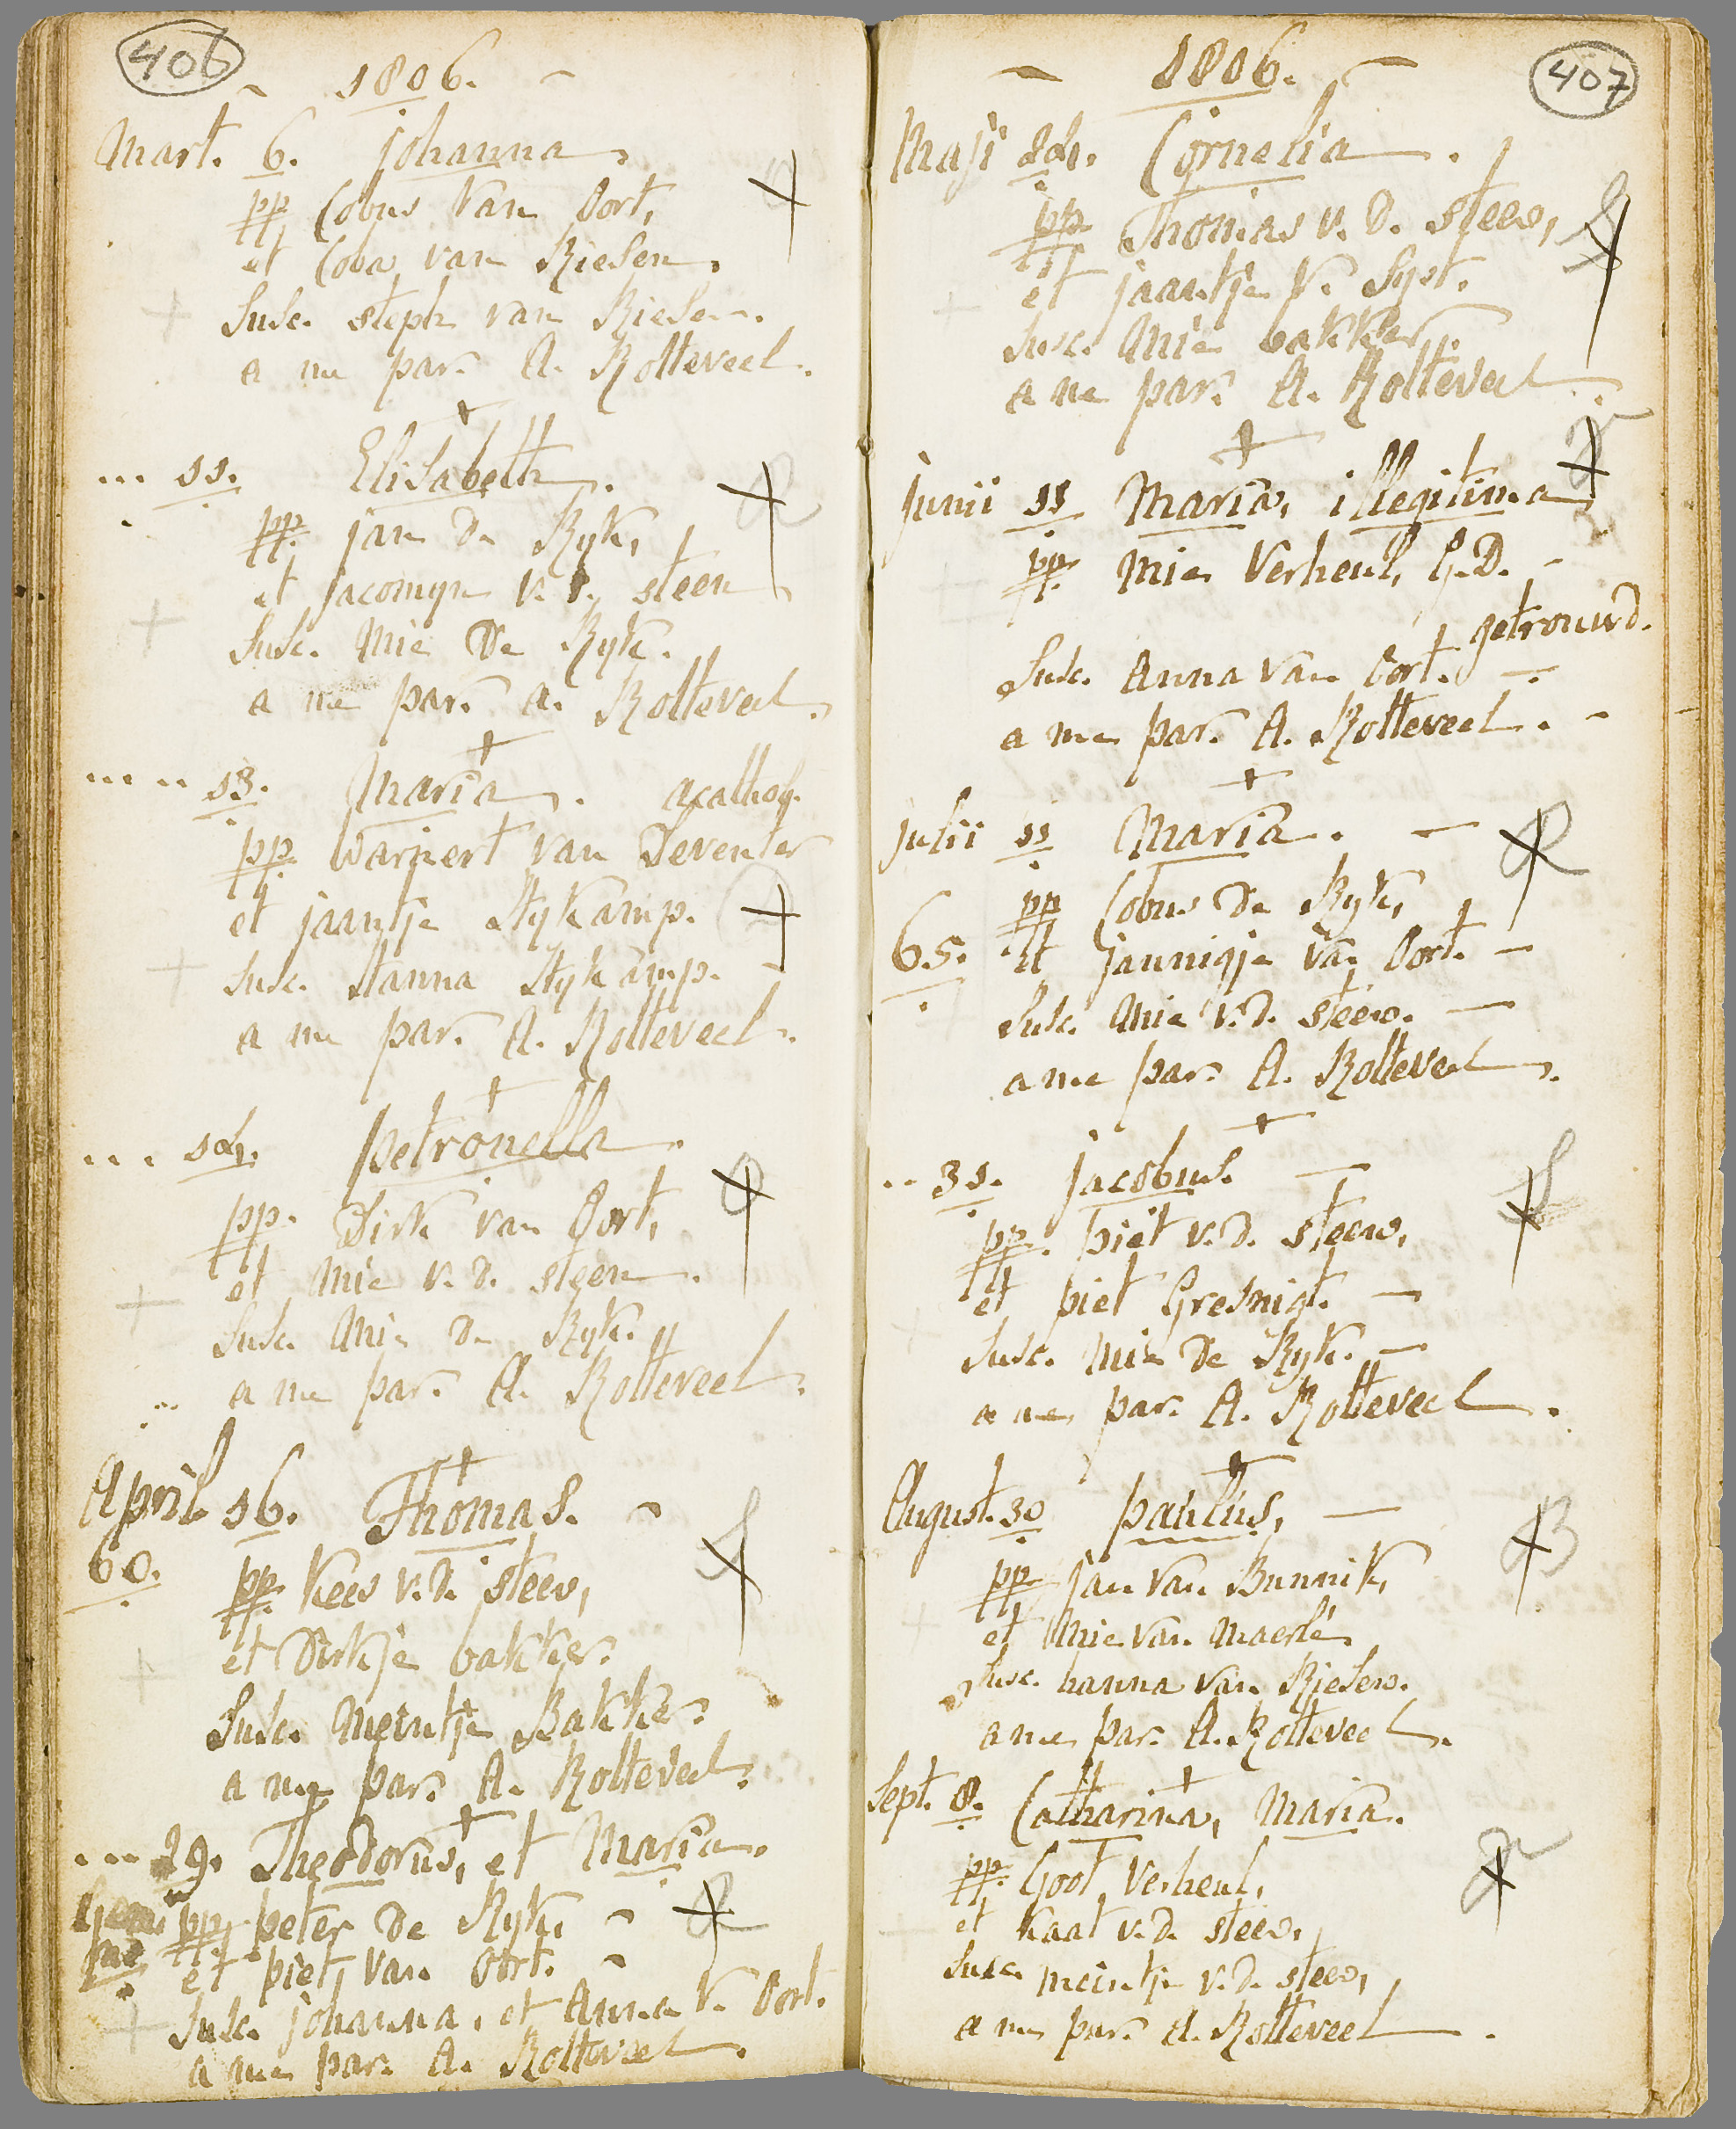 406
1806.
Mart. 6. Johanna.
pp Cobus van Oort,
et Coba van Riesen.
Susc. steph van Riesen.
a me par. A. Rolteveel.
... 11. Elisabeth.
pp. jan De Ryk,
et jacomyn v. D. steen
Susc. Mie De Ryk.
a me par. A. Rolteveel.
... .. 13. Maria. acathol.
pp. Warnert van Deventer
et jaantje Stykamp.
Susc. Hanna Stykamp.
a me par. A. Rolteveel.
... 14. petronella.
pp. Dirk van Oort,
et Mie v. D. steen.
Susc. Mie De Ryk.
a me par. A. Rolteveel.
April 16. Thomas.
60. pp. Kees v. D. steen,
et Dirkje bakker.
Susc. Meintje Bakker.
a me par. A. Rolteveel.
... 29. Theodorus, et Maria.
pp. peter De Ryk,
et piet, van Oort.
Susc. johanna, et Anna v. Oort.
a me par. A. Rolteveel.
407
1806.
Maji 24. Cornelia.
pp Thomas v. D. steen,
et jaantje v. Syst.
Susc. Mie bakker.
a me par. A. Rolteveel.
junii 11 Maria, illegitima
pp. Mie Verheul, G. D.
getrouwd.
Susc. Anna van Oort.
a me par. A. Rolteveel.
julii 11 Maria.
pp Cobus De Ryk,
65. et jannigje van Oort.
Susc. Mie v. D. steen.
a me par. A. Rolteveel.
.. 31. jacobus.
pp. piet v. D. steen,
et piet Gresnigt.
Susc. Mie De Ryk.
a me par. A. Rolteveel.
August. 30 paulus,
pp. jan van Bunnik,
et Mie van Maerle.
Susc. hanna van Riesen.
a me par. A. Rolteveel.
Sept. 8. Catharina, Maria.
pp. Goot Verheul,
et Kaat v. D. steen,
Susc. meintje v. D. steen,
a me par. A. Rolteveel.